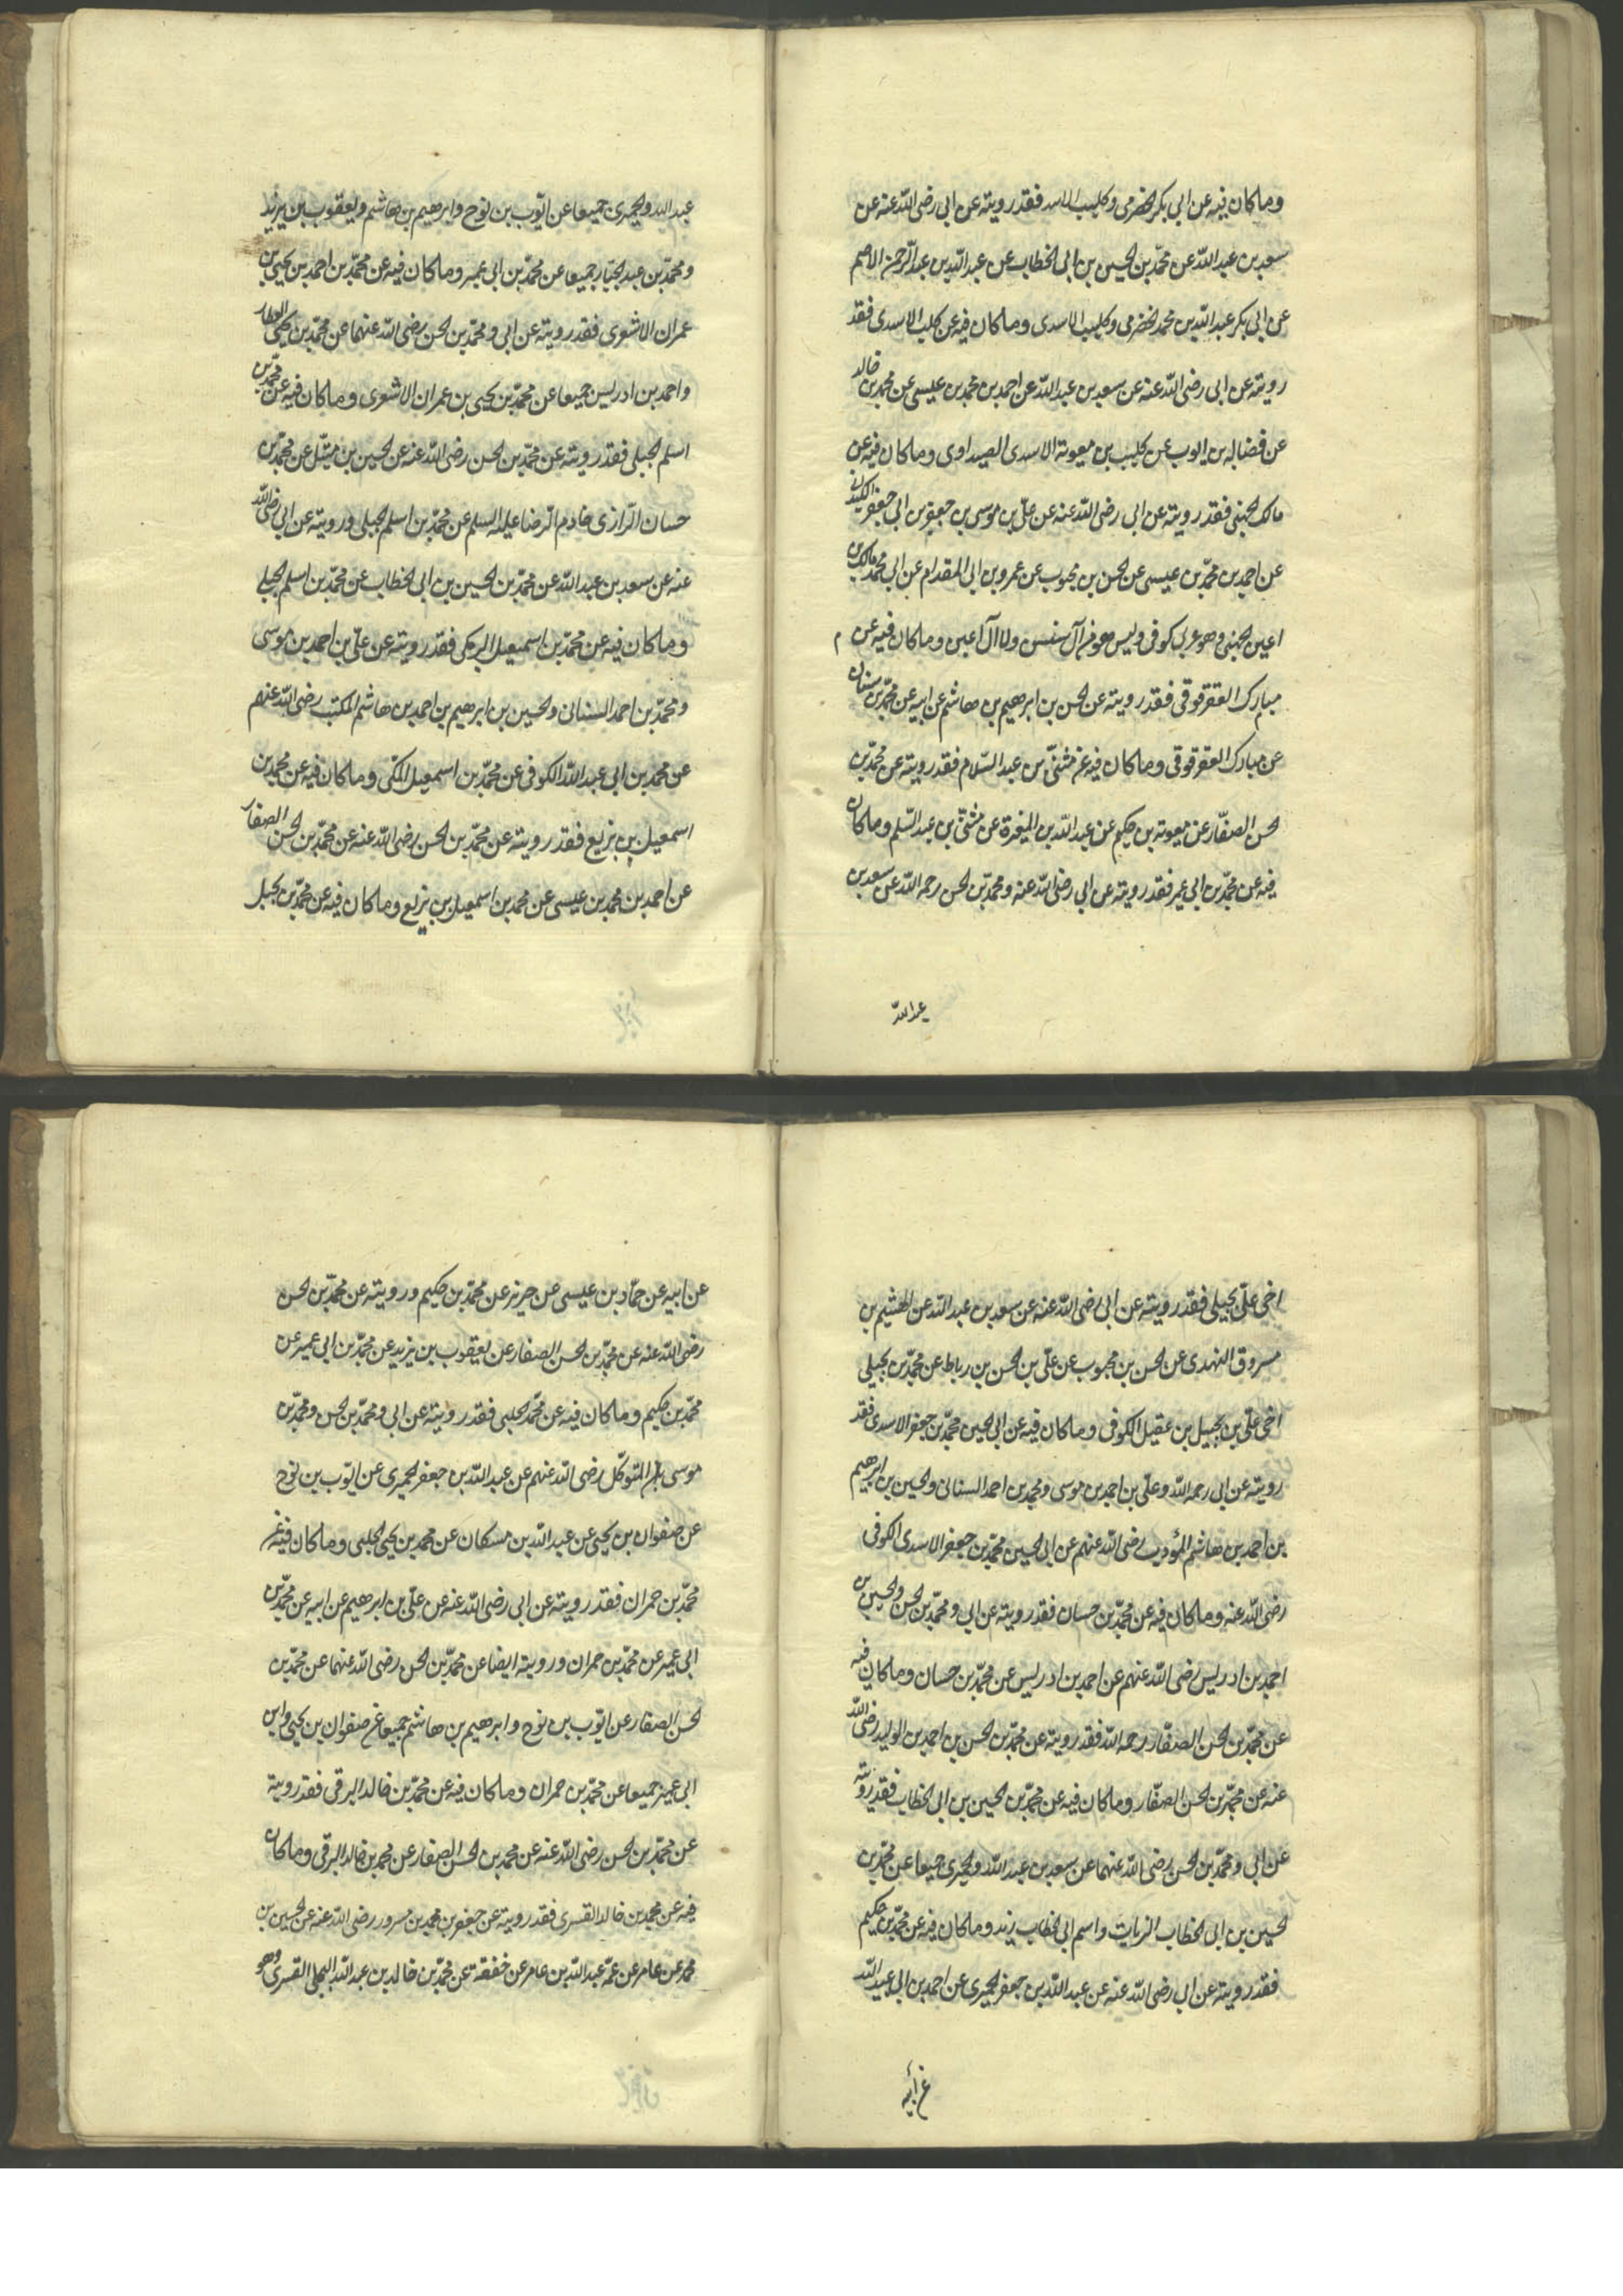 وما كان فيه عن ابي بكر الحضرمي وكليب الاسد فقد رويته عن ابي رضى الله عنه عن
سعد بن عبد الله عن محمد بن الحسين بن ابي الخطاب عن عبد الله بن عبد الرحمن الاصم
عن ابي بكر عبد الله بن محمد الحضرمي وكليب الاسدى وما كان فيه عن كليب الاسدى فقد
رويته عن ابى رضى الله عنه عن سعد بن عبد الله عن احمد بن محمد بن عيسى عن محمد بن خالد
عن فضالة بن ايوب عن كليب بن معوية الاسدى الصيداوى وما كان فيه عن
مالك الجهنى فقد رويته عن ابى رضى الله عنه عن على بن موسى بن جعفر بن ابى جعفر الكميدانى
عن احمد بن محمد بن عيسى عن الحسن بن محبوب عن عمرو بن ابى المقدام عن ابى محمد مالك بن
اعين الجهنى وهو عربى كوفى وليس هو من آل سنسن ولا آل اعين وما كان فيه عن
مبارك العقرقوفى فقد رويته عن الحسن بن ابرهيم بن هاشم عن ابيه عن محمد بن سنان
عن مبارك العقرقوفى وما كان فيه عن مثنى بن عبد السلام فقد رويته عن محمد بن
الحسن الصفار عن معوية بن حكيم عن عبد الله بن المغيرة عن مثنى بن عبد السلم وما كان
فيه عن محمد بن ابى عمير فقد رويته عن ابى رضى الله عنه ومحمد بن الحسن رحمه الله عن سعد بن
عبد الله
عبد الله والحميرى جميعا عن ايوب بن نوح وابرهيم بن هاشم ويعقوب بن يزيد
ومحمد بن عبد الجبار جميعا عن محمد بن ابى عمير وما كان فيه عن محمد بن احمد بن يحيى بن
عمران الاشعرى فقد رويته عن ابى ومحمد بن الحسن رضى الله عنهما عن محمد بن يحيى العطار
واحمد بن ادريس جميعا عن محمد بن يحيى بن عمران الاشعرى وما كان فيه عن محمد بن
اسلم الجبلى فقد رويته عن محمد بن الحسن رضى الله عنه عن الحسين بن متيل عن محمد بن
حسان الرازى خادم الرضا عليه السلم عن محمد بن اسلم الجبلى ورويته عن ابى رضى الله
عنه عن سعد بن عبد الله عن محمد بن الحسين بن ابى الخطاب عن محمد بن اسلم الجبلى
وما كان فيه عن محمد بن اسمعيل البرمكى فقد رويته عن على بن احمد بن موسى
ومحمد بن احمد السنانى والحسين بن ابرهيم بن احمد بن هاشم المكتب رضى الله عنهم
عن محمد بن ابى عبد الله الكوفى عن محمد بن اسمعيل المكى وما كان فيه عن محمد بن
اسمعيل بن بزيع فقد رويته عن محمد بن الحسن رضى الله عنه عن محمد بن الحسن الصفار
عن احمد بن محمد بن عيسى عن محمد بن اسمعيل بن بزيع وما كان فيه عن محمد بن بجيل
اخى على بجيلى فقد رويته عن ابى رضى الله عنه عن سعد بن عبد الله عن الهيثم بن
مسروق النهدى عن الحسن بن محبوب عن على بن الحسن بن رباط عن محمد بن بجيلى
اخى على بن بجيل بن عقيل الكوفى وما كان فيه عن ابى الحسين محمد بن جعفر الاسدى فقد
رويته عن ابى رحمه الله وعلى بن احمد بن موسى ومحمد بن احمد السنانى والحسين بن ابرهيم
بن احمد بن هاشم المؤدب رضى الله عنهم عن ابى الحسين محمد بن جعفر الاسدى الكوفى
رضى الله عنه وما كان فيه عن محمد بن حسان فقد رويته عن ابى ومحمد بن الحسن والحسين بن
احمد بن ادريس رضى الله عنهم عن احمد بن ادريس عن محمد بن حسان وما كان فيه
عن محمد بن الحسن الصفار رحمه الله فقد رويته عن محمد بن الحسن بن احمد بن الوليد رضى الله
عنه عن محمد بن الحسن الصفار وما كان فيه عن محمد بن الحسين بن ابى الخطاب فقد رويته
عن ابى ومحمد بن الحسن رضى الله عنهما عن سعد بن عبد الله والحميرى جميعا عن محمد بن
الحسين بن ابى الخطاب الزيات واسم ابى الخطاب زيد وما كان فيه عن محمد بن حكيم
فقد رويته عن ابى رضى الله عنه عن عبد الله بن جعفر الحميرى عن احمد بن ابى عبد الله
عن أبيه
عن ابيه عن حماد بن عيسى عن حريز عن محمد بن حكيم ورويته عن محمد بن الحسن
رضى الله عنه عن محمد بن الحسن الصفار عن يعقوب بن يزيد عن محمد بن ابى عمير عن
محمد بن حكيم وما كان فيه عن محمد الحلبى فقد رويته عن ابى ومحمد بن الحسن ومحمد بن
موسى بن المتوكل رضى الله عنهم عن عبد الله بن جعفر الحميرى عن ايوب بن نوح
عن صفوان بن يحيى عن عبد الله بن مسكان عن محمد بن يحيى الحلبى وما كان فيه عن
محمد بن حمران فقد رويته عن ابى رضى الله عنه عن على بن ابرهيم عن ابيه عن محمد بن
ابى عمير عن محمد بن حمران ورويته ايضا عن محمد بن الحسن رضى الله عنهما عن محمد بن
الحسن الصفار عن ايوب بن نوح وابرهيم بن هاشم جميعا عن صفوان بن يحيى وابن
ابى عمير جميعا عن محمد بن حمران وما كان فيه عن محمد بن خالد البرقى فقد رويته
عن محمد بن الحسن رضى الله عنه عن محمد بن الحسن الصفار عن محمد بن خالد البرقى وما كان
فيه عن محمد بن خالد القسرى فقد رويته عن جعفر بن محمد بن مسرور رضى الله عنه عن الحسين بن
محمد عن عامر عن عمه عبد الله بن عامر عن خفقة عن محمد بن خالد بن عبد الله البجلى القسرى وهو